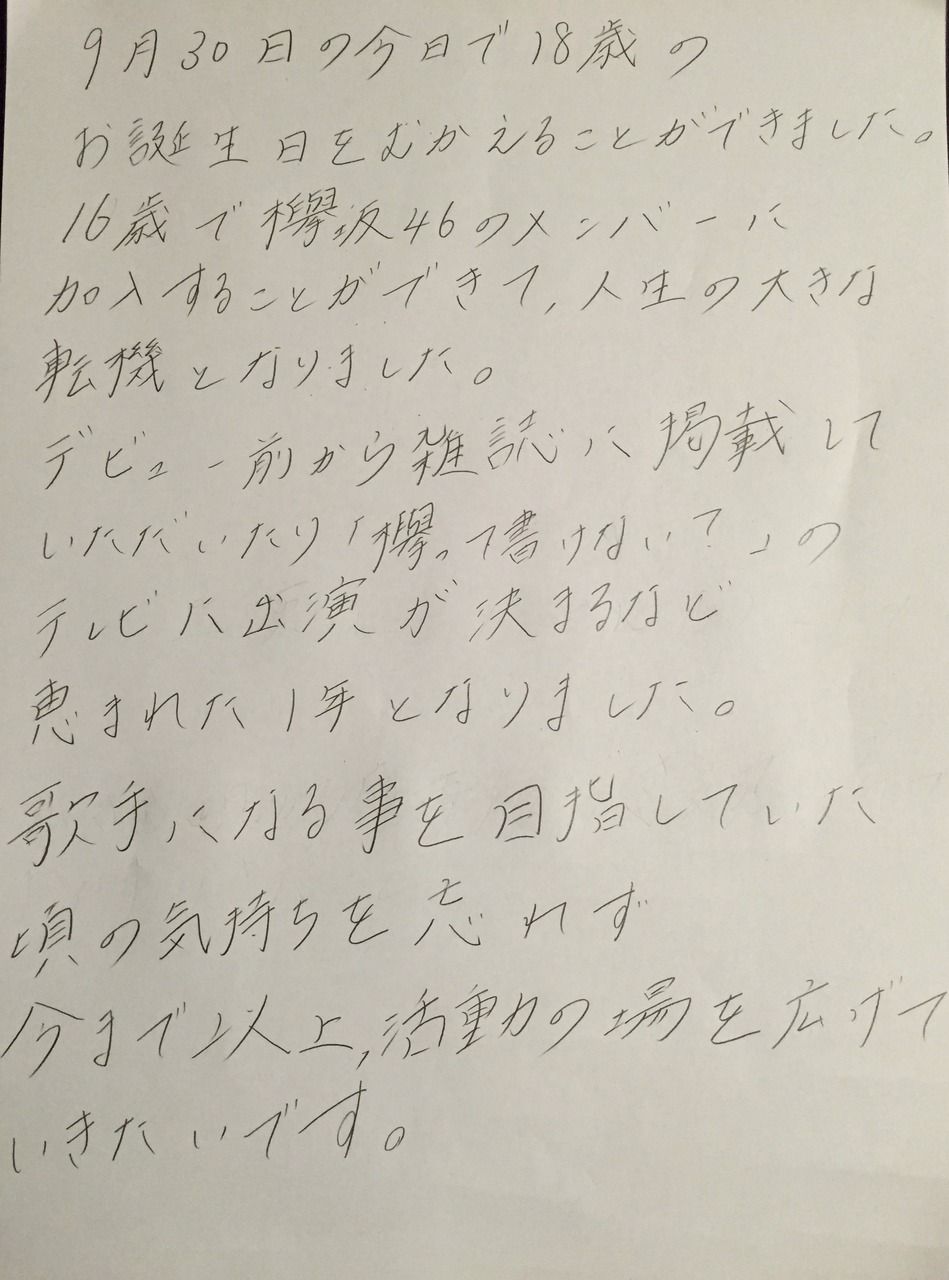 9月30日の今日で18歳の
お誕生日をむかえることができました。
16歳で欅坂46のメンバーに
加入することができて,人生の大きな
転機となりました。
デビュー前から雑誌に掲載して
いただいたり「欅って書けない?」の
テレビに出演が決まるなど
恵まれた1年となりました。
歌手になる事を目指していた
頃の気持ちを忘れず
今まで以上,活動の場を広げて
いきたいです。